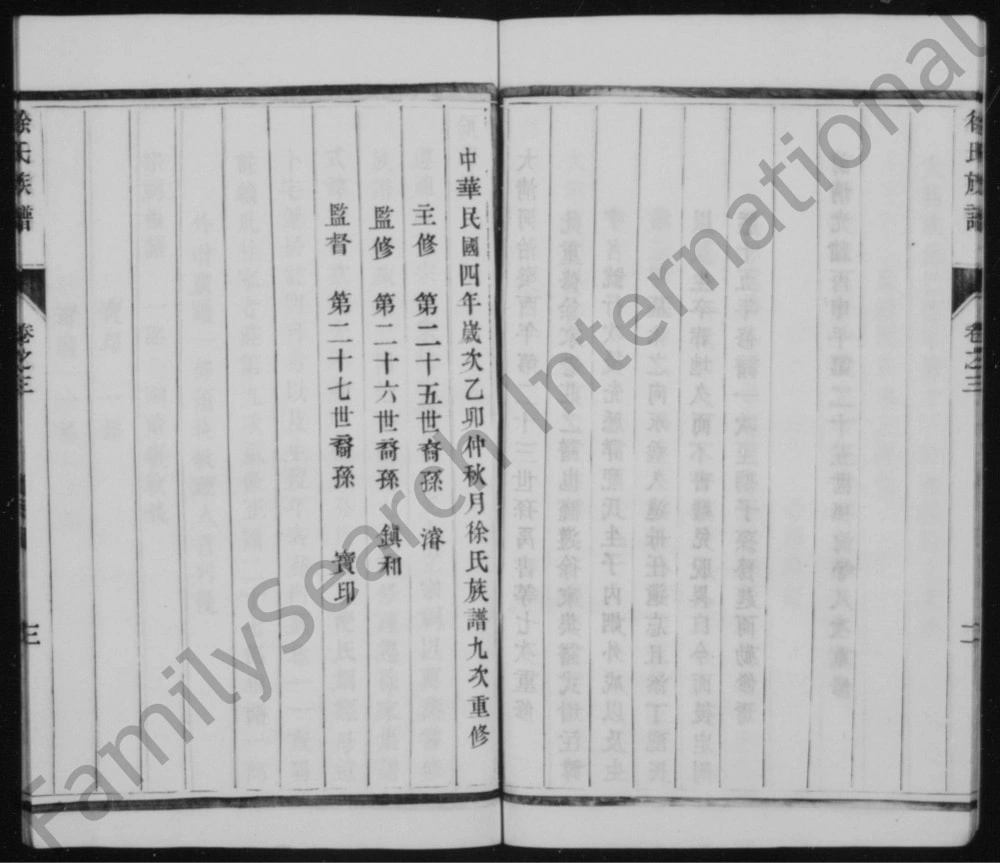 徐氏族譜
卷之三
二
中華民國四年歲次乙卯仲秋月徐氏族譜九次重修
主修 第二十五世裔孫 濬
監修 第二十六世裔孫 鎮和
監督 第二十七世裔孫 寶印
徐氏族譜
卷之三
三
FamilySearch International